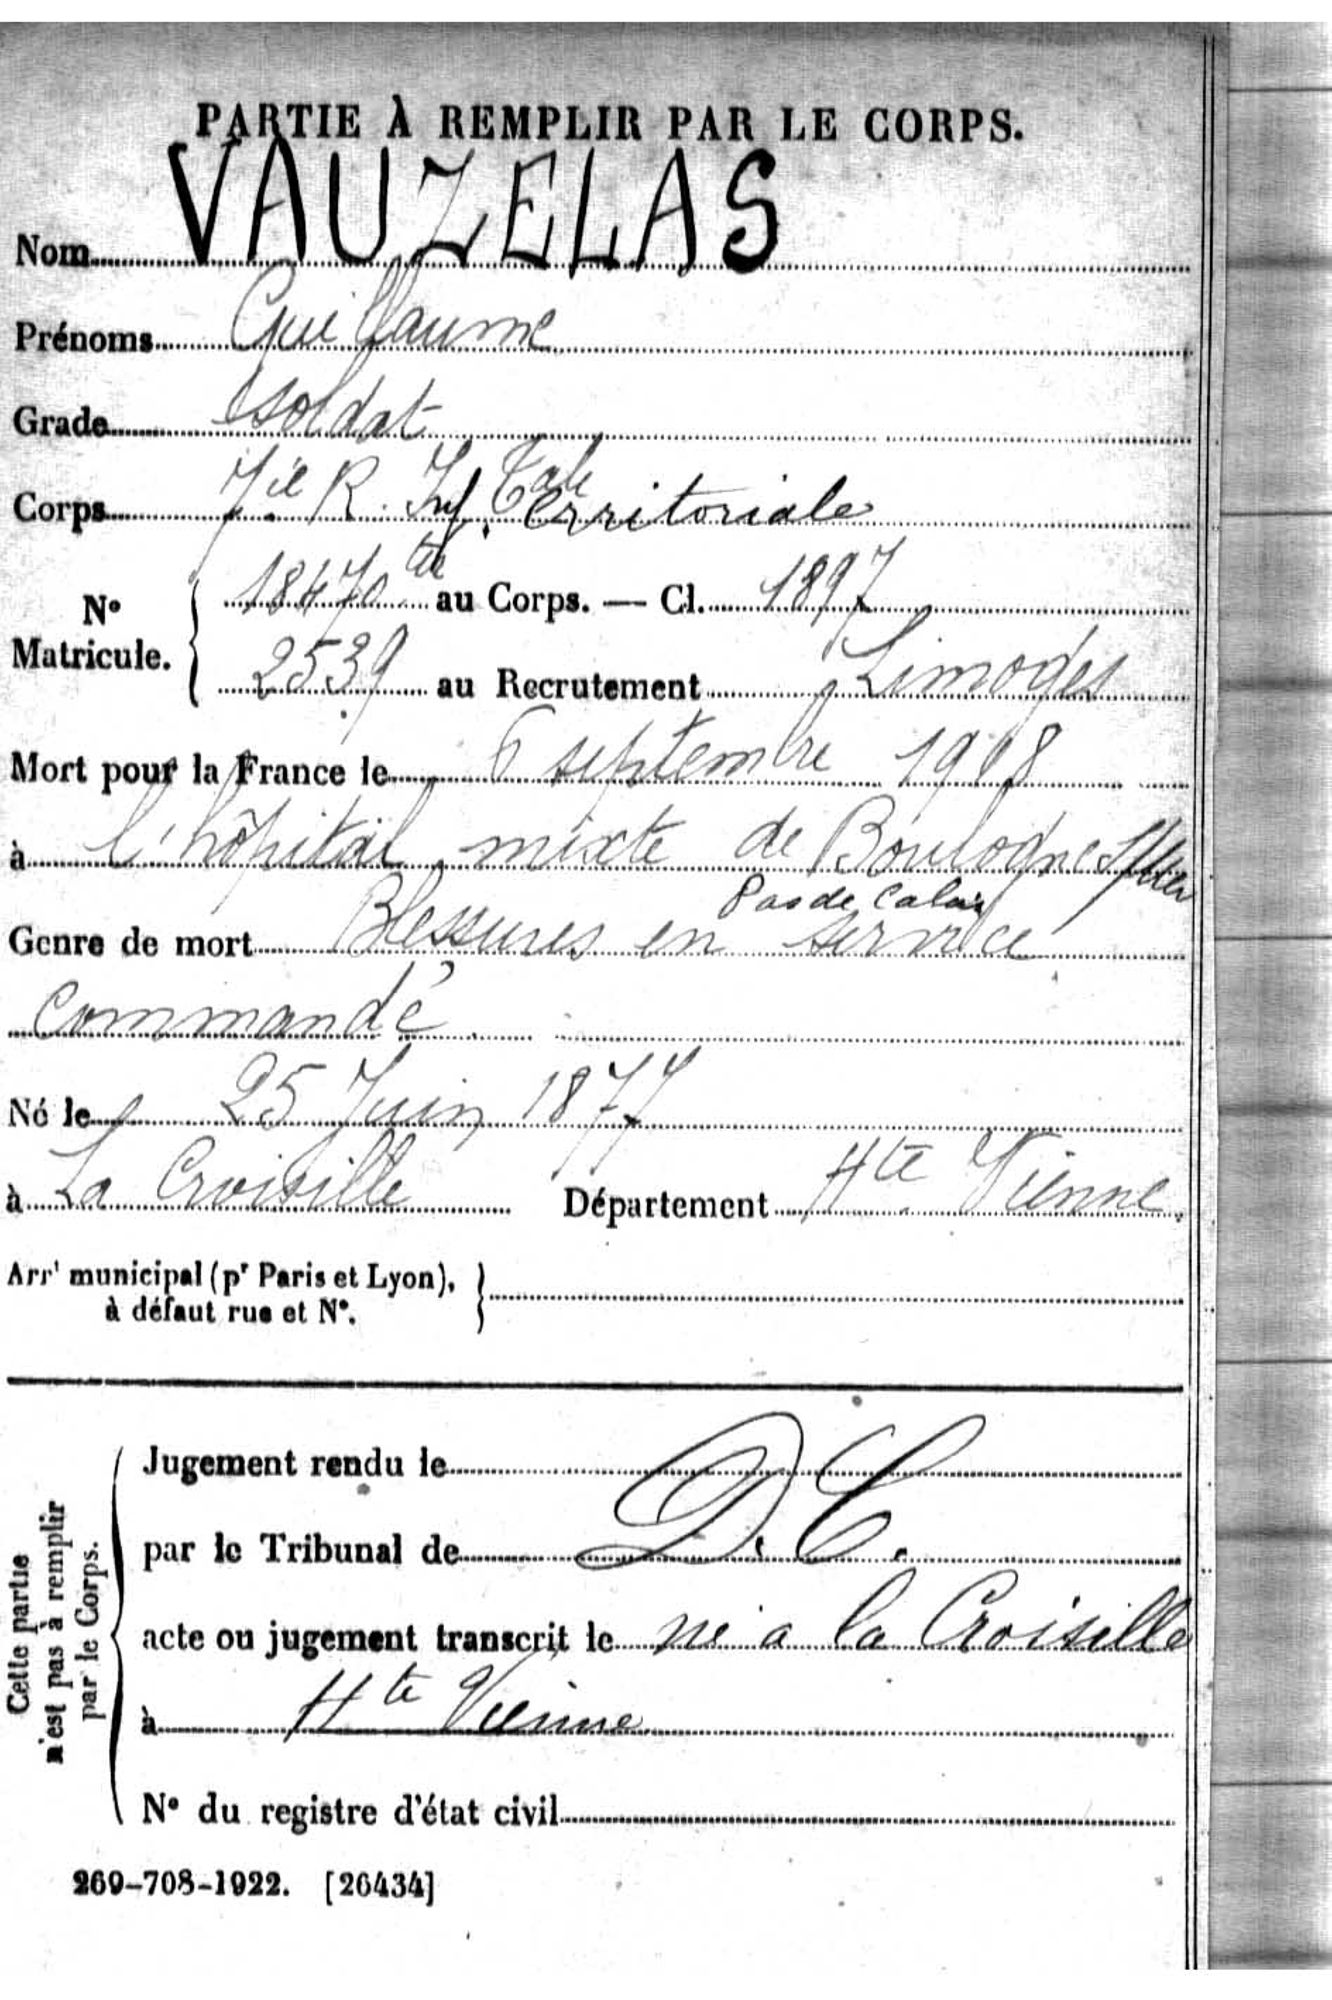 PARTIE À REMPLIR PAR LE CORPS.
Nom VAUZELAS
Prénoms Guillaume
Grade Soldat
Corps 7ie R. Inf. Tale erritoriale
N° Matricule. 18470 au Corps. — Cl. 1897
2539 au Recrutement Limoges
Mort pour la France le 6 septembre 1918
à l'hôpital mixte de Boulogne s/Mer
Pas de Calais
Genre de mort Blessures en service
commandé
Né le 25 Juin 1877
à La Croisille Département Hte Vienne
Arrt municipal (pr Paris et Lyon),
à défaut rue et N°.
Cette partie
n'est pas à remplir
par le Corps.
Jugement rendu le
par le Tribunal de D.C.
acte ou jugement transcrit le né a la Croisille
à Hte Vienne
N° du registre d'état civil
269-708-1922. [26434]